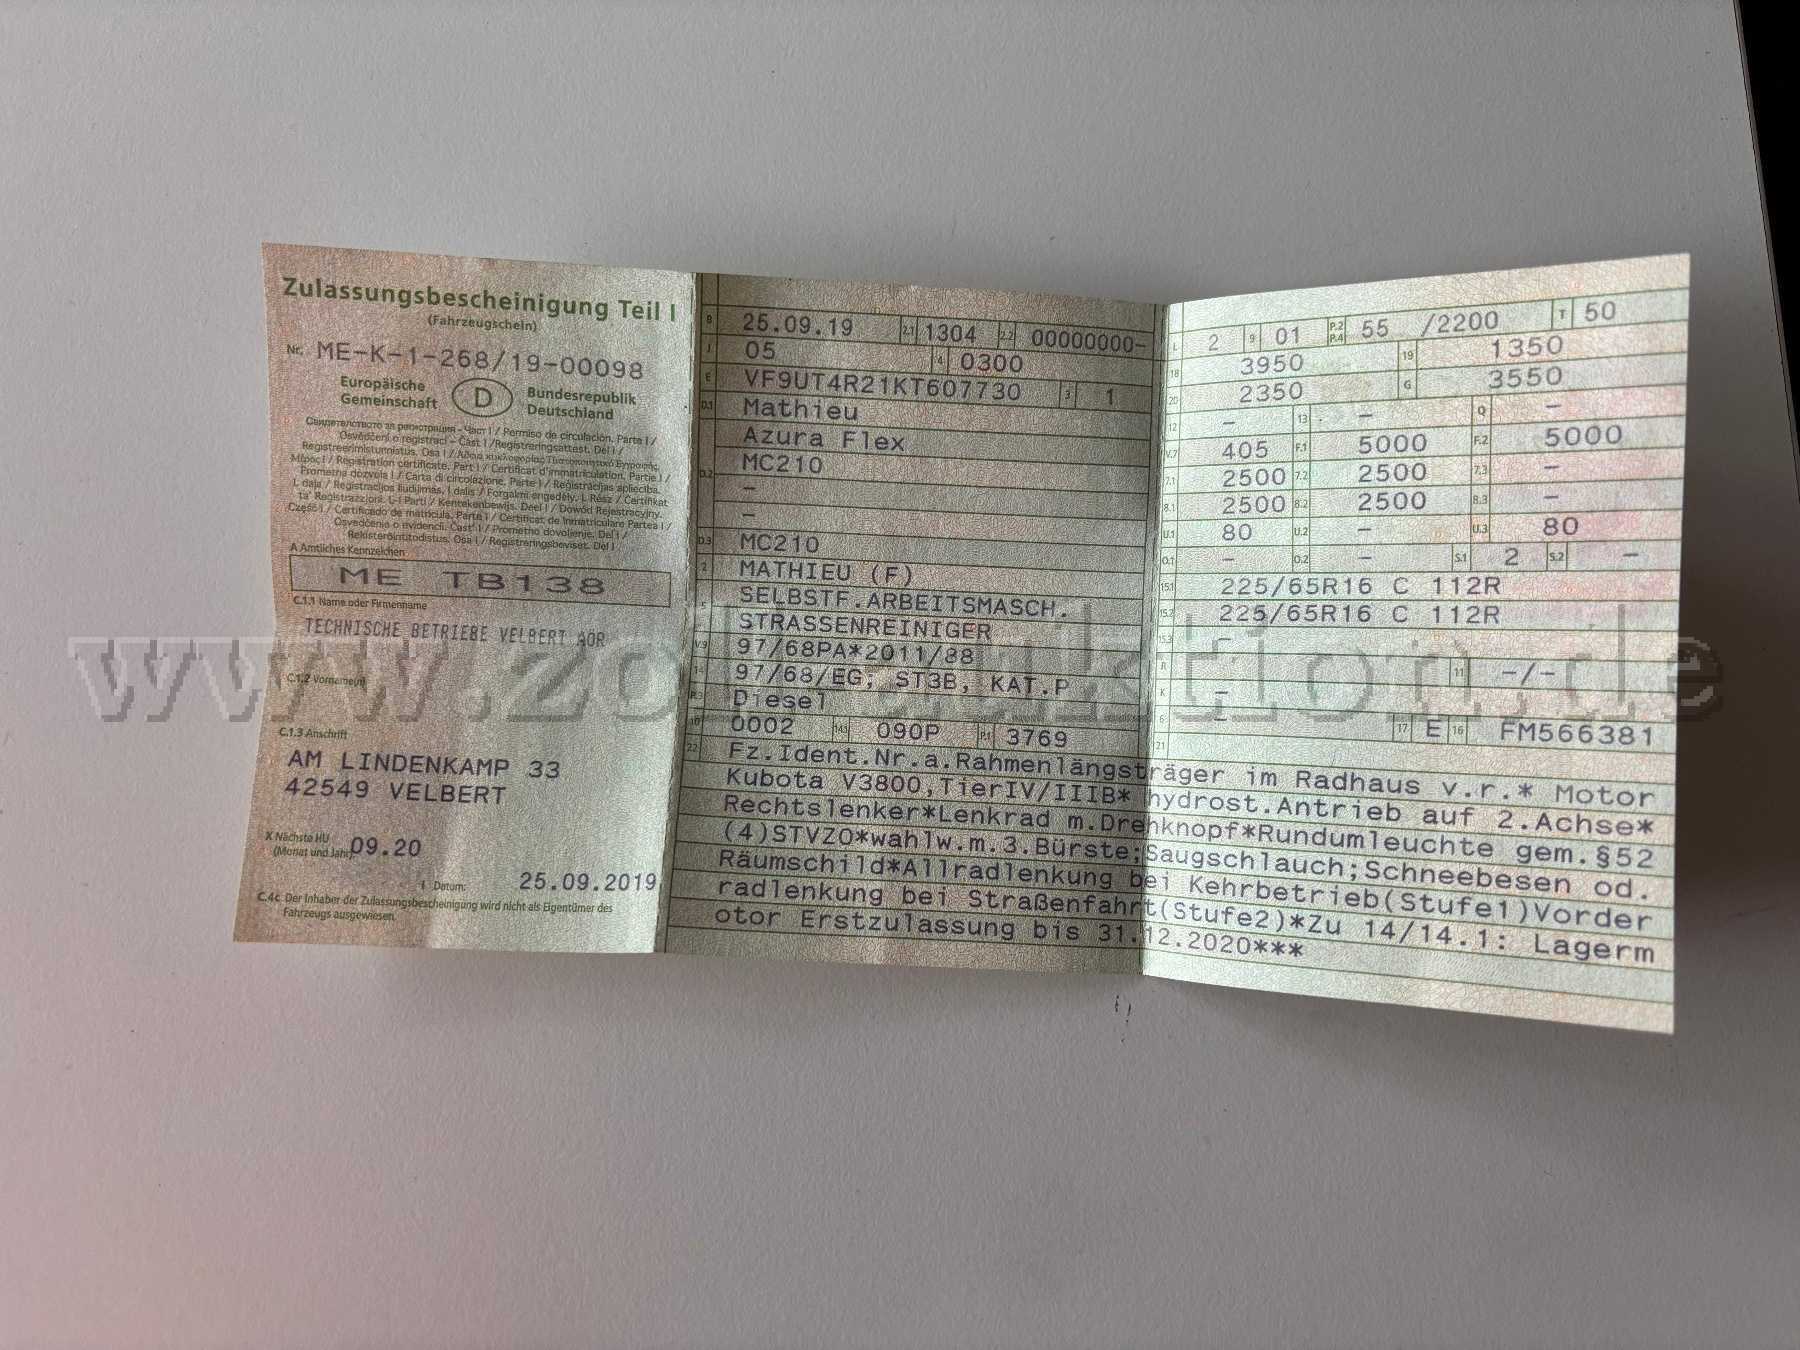 Zulassungsbescheinigung Teil I
(Fahrzeugschein)
Nr. ME-K-1-268/19-00098
Europäische Gemeinschaft
D
Bundesrepublik Deutschland
Свидетелството за регистрация - Част I / Permiso de circulación. Parte I /
Osvědčení o registraci - Část I / Registreringsattest. Del I /
Registreerimistunnistus. Osa I / Άδεια κυκλοφορίας
Μέρος I / Registration certificate. Part I / Certificat d'immatriculation. Partie I /
Prometna dozvola I / Carta di circolazione. Parte I / Reģistrācijas apliecība.
I. daļa / Registracijos liudijimas. I dalis / Forgalmi engedély. I. Rész / Ċertifikat
ta' Reġistrazzjoni. L-I Parti / Kentekenbewijs. Deel I / Dowód Rejestracyjny.
Część I / Certificado de matrícula. Parte I / Certificat de înmatriculare Partea I /
Osvedčenie o evidencii. Časť I / Prometno dovoljenje. Del I /
Rekisteröintitodistus. Osa I / Registreringsbeviset. Del I
A Amtliches Kennzeichen
ME TB138
C.1.1 Name oder Firmenname
TECHNISCHE BETRIEBE VELBERT AÖR
C.1.2 Vorname(n)
C.1.3 Anschrift
AM LINDENKAMP 33
42549 VELBERT
X Nächste HU
(Monat und Jahr) 09.20
I Datum: 25.09.2019
C.4c Der Inhaber der Zulassungsbescheinigung wird nicht als Eigentümer des
Fahrzeugs ausgewiesen.
B 25.09.19 2.1 1304 2.2 00000000-
J 05 4 0300
E VF9UT4R21KT607730 3 1
D.1 Mathieu
Azura Flex
D.2 MC210
-
-
D.3 MC210
2 MATHIEU (F)
5 SELBSTF.ARBEITSMASCH.
STRASSENREINIGER
V.9 97/68PA*2011/88
14 97/68/EG; ST3B, KAT.P
P.3 Diesel
10 0002 14.1 090P P.1 3769
L 2 9 01 P.2 P.4 55 /2200 T 50
18 3950 19 1350
20 2350 G 3550
12 - 13 - Q -
V.7 405 F.1 5000 F.2 5000
7.1 2500 7.2 2500 7.3 -
8.1 2500 8.2 2500 8.3 -
U.1 80 U.2 - U.3 80
O.1 - O.2 - S.1 2 S.2 -
15.1 225/65R16 C 112R
15.2 225/65R16 C 112R
15.3 -
R 11 -/-
K -
6 - 17 E 16 FM566381
21
22 Fz.Ident.Nr.a.Rahmenlängsträger im Radhaus v.r.* Motor
Kubota V3800,TierIV/IIIB* hydrost.Antrieb auf 2.Achse*
Rechtslenker*Lenkrad m.Drehknopf*Rundumleuchte gem.§52
(4)STVZO*wahlw.m.3.Bürste;Saugschlauch;Schneebesen od.
Räumschild*Allradlenkung bei Kehrbetrieb(Stufe1)Vorder
radlenkung bei Straßenfahrt(Stufe2)*Zu 14/14.1: Lagerm
otor Erstzulassung bis 31.12.2020***
www.zoll-auktion.de